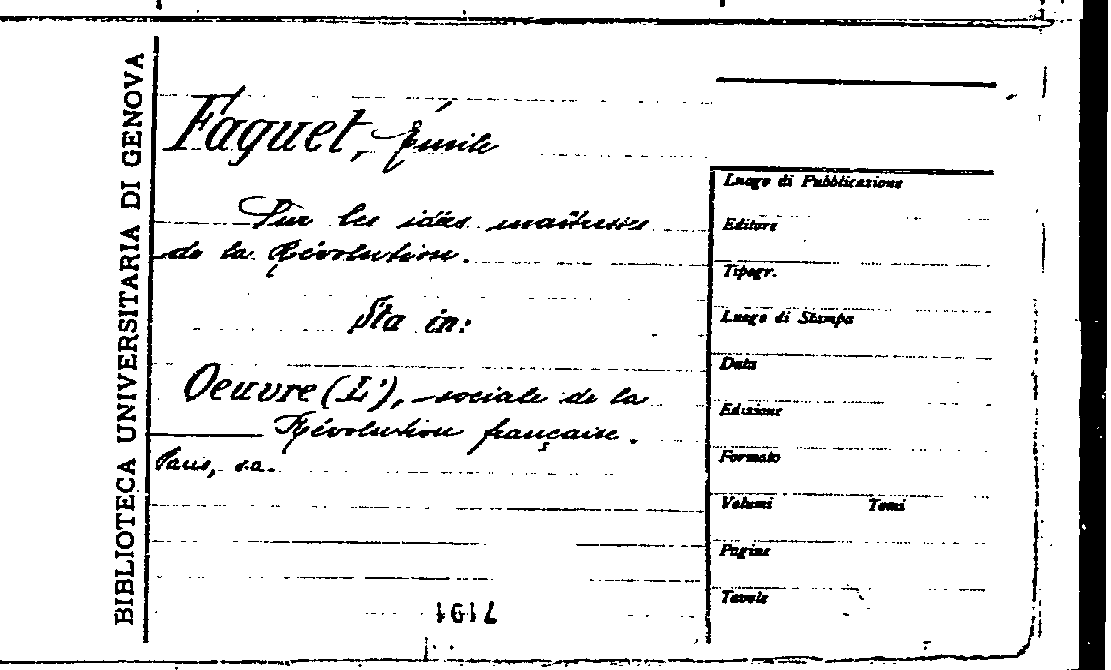 BIBLIOTECA UNIVERSITARIA DI GENOVA
Faguet, Émile
Sur les idées maîtresses
de la Révolution.
Sta in:
Oeuvre (L'), sociale de la
Révolution française.
Paris, s.a.
7191
Luogo di Pubblicazione
Editore
Tipogr.
Luogo di Stampa
Data
Edizione
Formato
Volumi Tomi
Pagine
Tavole